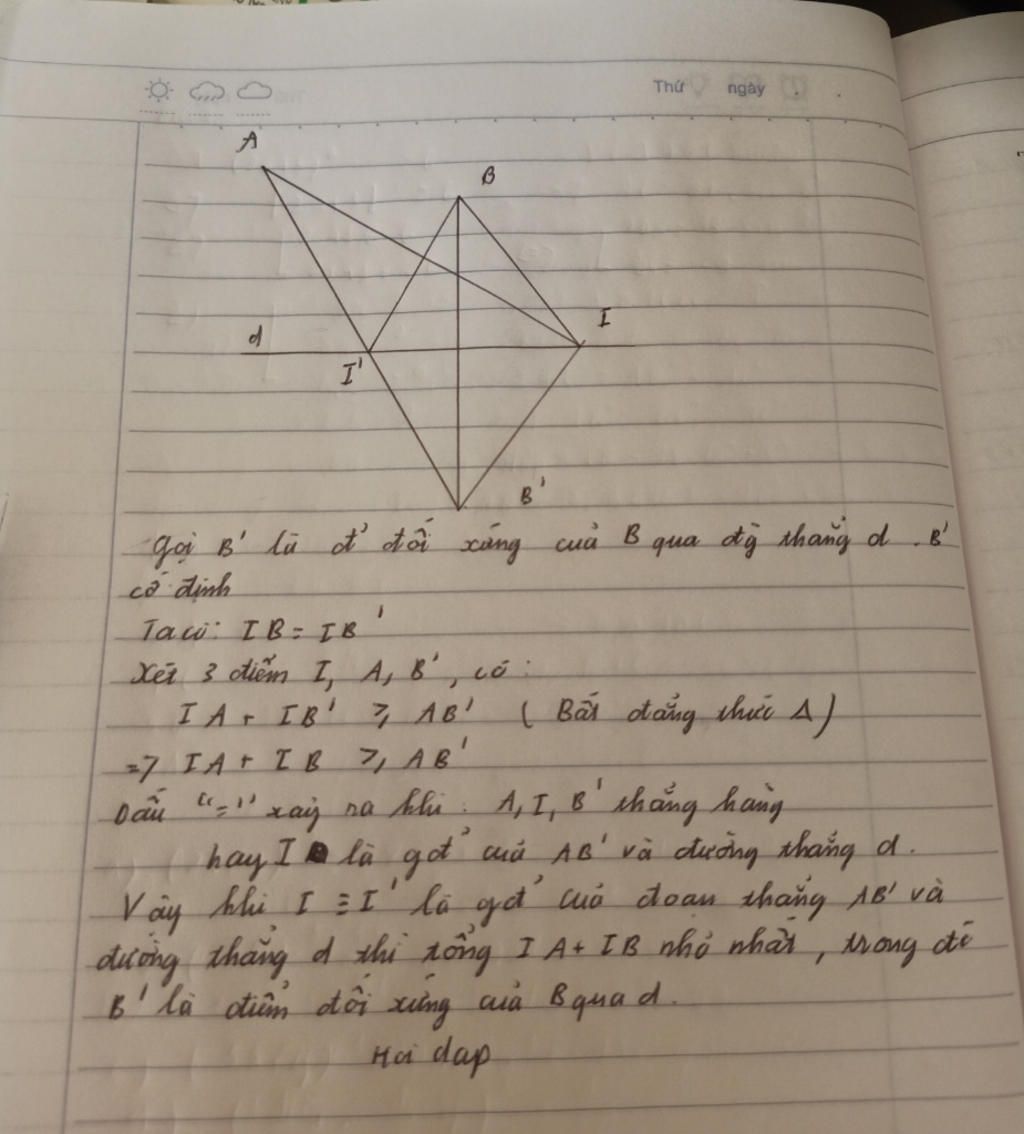 Thứ ngày
A
B
d
I
I'
B'
Gọi B' là đ' đối xứng của B qua đg thẳng d . B'
cố định
Ta có: IB = IB'
Xét 3 điểm I, A, B', có :
IA + IB' ≥ AB' ( Bất đẳng thức Δ)
=> IA + IB ≥ AB'
Dấu "=" xảy ra khi : A, I, B' thẳng hàng
hay I là gđ' của AB' và đường thẳng d.
Vậy khi I ≡ I' là gđ' của đoạn thẳng AB' và
đường thẳng d thì tổng IA + IB nhỏ nhất, trong đó
B' là điểm đối xứng của B qua d.
Hoi dap